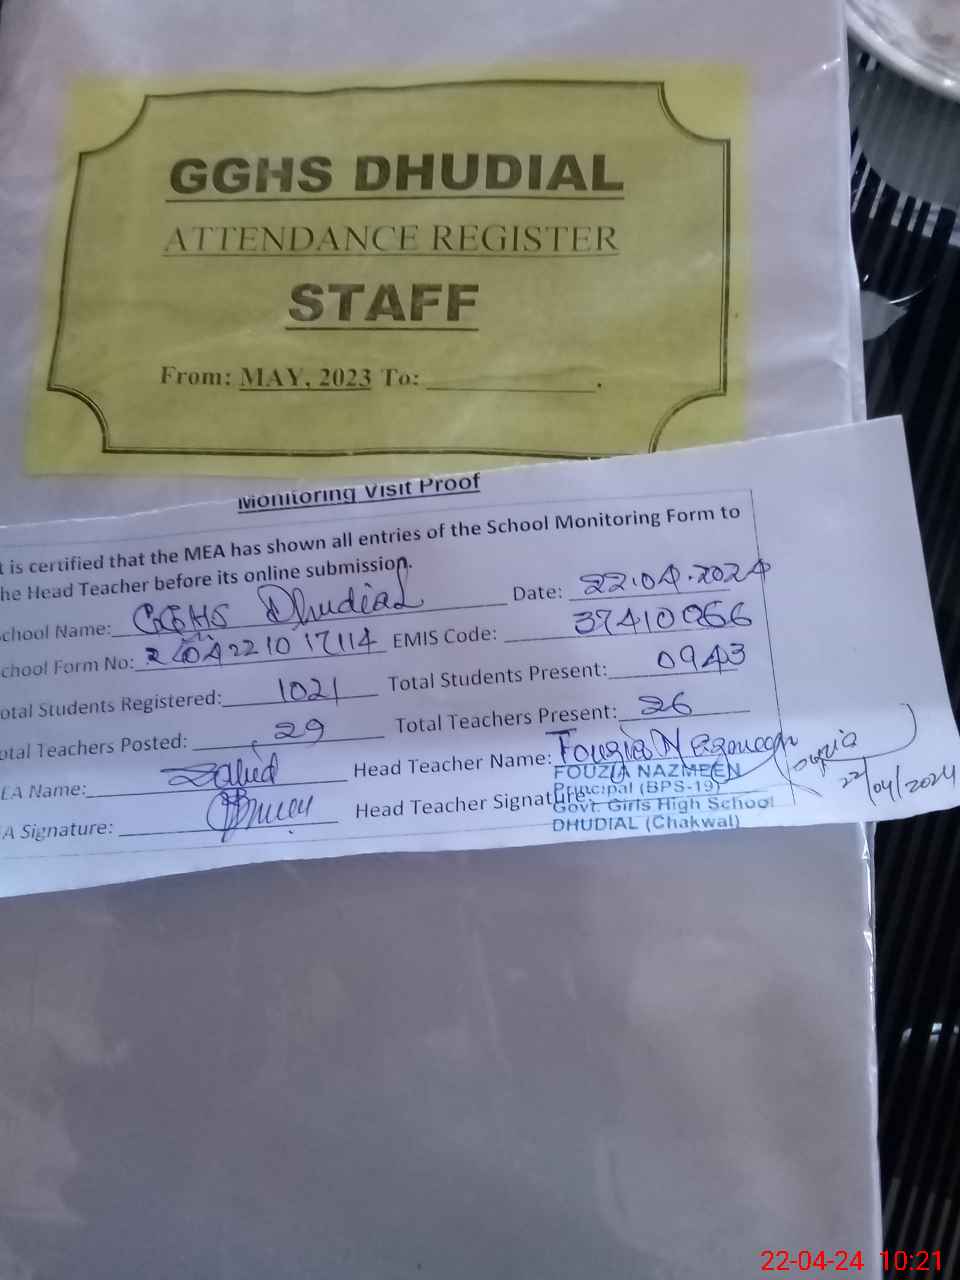 GGHS DHUDIAL
ATTENDANCE REGISTER
STAFF
From: MAY, 2023 To: ____________.
Monitoring Visit Proof
t is certified that the MEA has shown all entries of the School Monitoring Form to
he Head Teacher before its online submission.
chool Name: GGHS Dhudial Date: 22.04.2024
chool Form No: EMIS Code: 37410066
otal Students Registered: 1021 Total Students Present: 0943
otal Teachers Posted: 29 Total Teachers Present: 26
EA Name: Zahid Head Teacher Name: Fouzia Nazmeen
A Signature: Head Teacher Signature:
FOUZIA NAZMEEN
Principal (BPS-19)
Govt. Girls High School
DHUDIAL (Chakwal)
Fouzia
22/04/2024
22-04-24 10:21